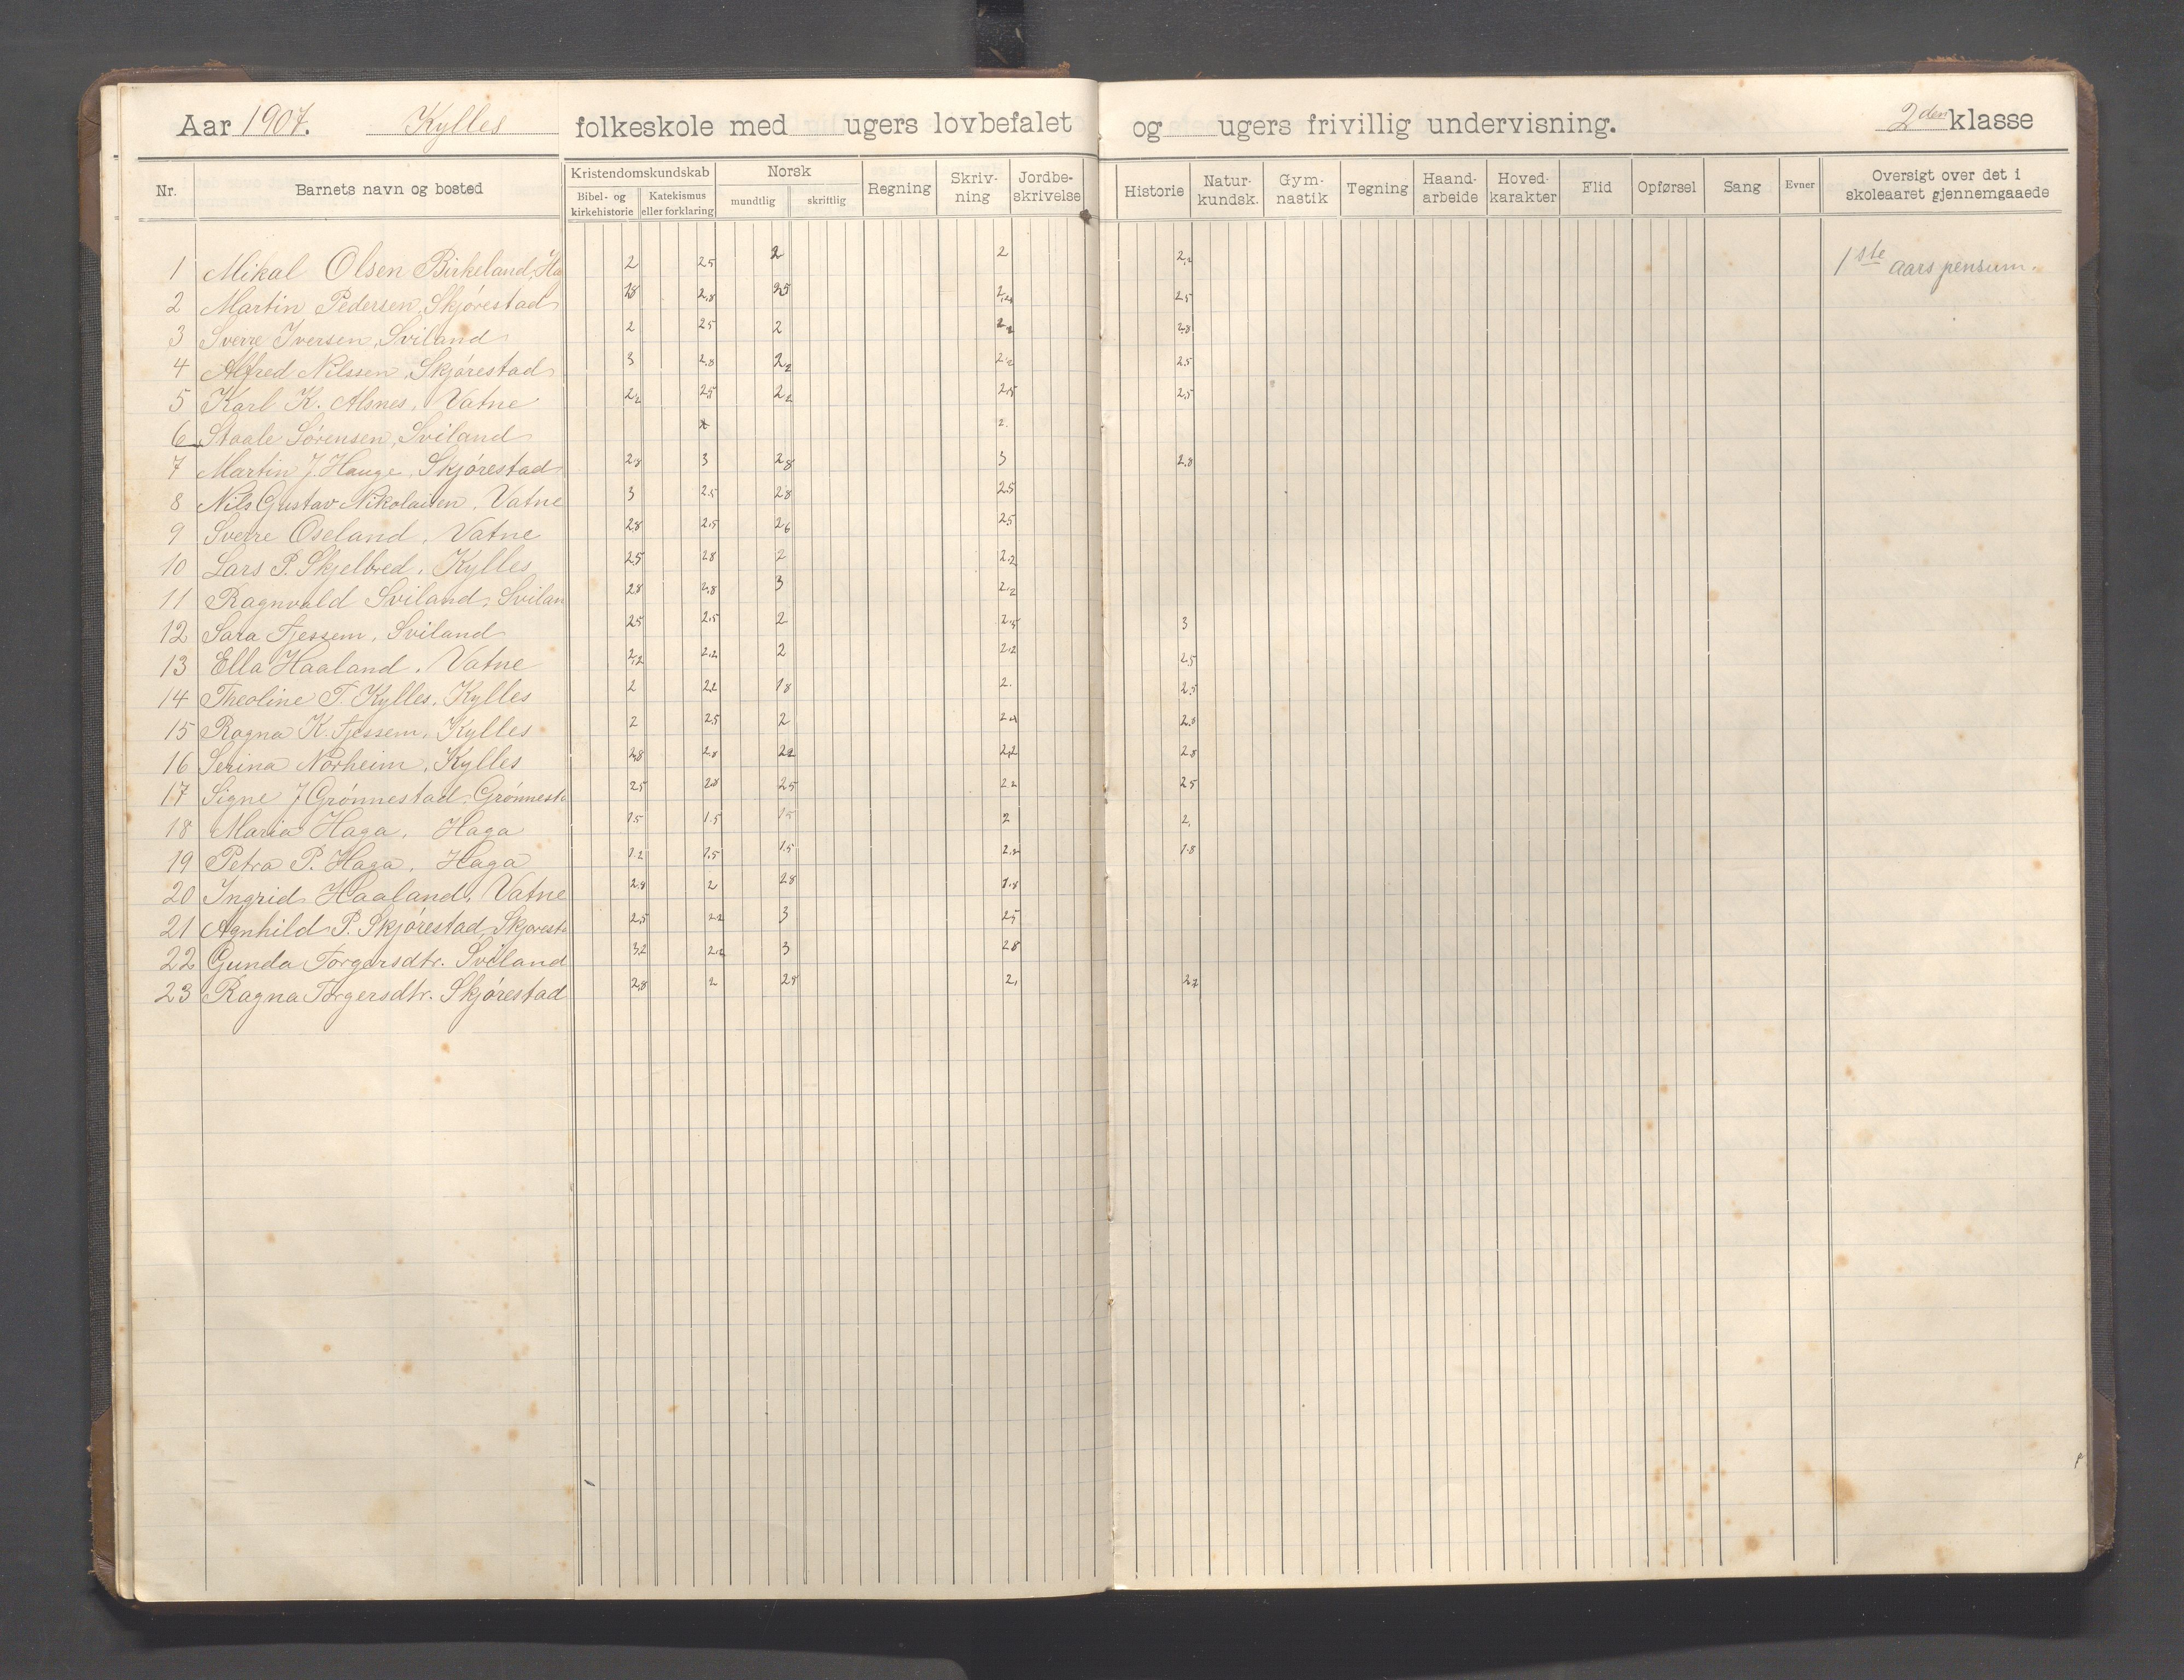 Aar 1907. Kylles folkeskole med ugers lovbefalet og ugers frivillig undervisning. 2den klasse
Nr. Barnets navn og bosted Kristendomskundskab Bibel- og kirkehistorie Katekismus eller forklaring Norsk mundtlig skriftlig Regning Skriv-ning Jordbe-skrivelse Historie Natur-kundsk. Gym-nastik Tegning Haand-arbeide Hoved-karakter Flid Opførsel Sang Evner Oversigt over det i skoleaaret gjennemgaaede
1 Mikal Olsen Birkeland, Ha 2 2,5 2 2 2,2 1ste aars pensum.
2 Martin Pedersen, Skjørestad 1,8 2,8 2,5 2,2 2,5
3 Sverre Iversen, Sviland 2 2,5 2 2,2 2,8
4 Alfred Nilssen, Skjørestad 3 2,8 2,2 2,2 2,5
5 Karl K. Alsnes, Vatne 2,2 2,5 2,2 2,5 2,5
6 Staale Sørensen, Sviland 2.
7 Martin J. Hauge, Skjørestad 2,8 3 2,8 3 2,8
8 Nils Gustav Nikolaisen, Vatne 3 2,5 2,8 2,5
9 Sverre Oseland, Vatne 2,8 2,5 2,6 2,5
10 Lars P. Skjelbred, Kylles 2,5 2,8 2 2,2
11 Ragnvald Sviland, Svilan 2,8 2,8 3 2,2
12 Sara Tjessem, Sviland 2,5 2,5 2 2,5 3
13 Ella Haaland, Vatne 2,2 2,2 2 2,2 2,5
14 Theoline T. Kylles, Kylles 2 2,2 1,8 2. 2,5
15 Ragna K. Tjessem, Kylles 2 2,5 2 2,2 2,8
16 Serina Norheim, Kylles 2,8 2,8 2,2 2,2 2,8
17 Signe J Grønnestad, Grønnesta 2,5 2,8 2,5 2,2 2,5
18 Maria Haga, Haga 1,5 1,5 1,5 2 2,
19 Petra P. Haga, Haga 1,2 1,5 1,5 2,2 1,8
20 Ingrid Haaland, Vatne 2,8 2 2,8 1,8
21 Agnhild P. Skjørestad, Skjøresta 2,5 2,2 3 2,5
22 Gunda Torgersdtr. Sviland 3,2 2,2 3 2,8
23 Ragna Torgersdtr. Skjørestad 2,8 2 2,8 2, 2,2